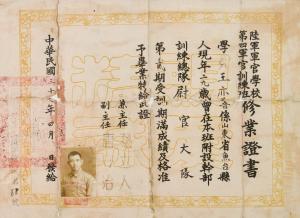 陸軍軍官學校
第四軍官訓練班修業證書
學員王亦魯係山東省魚台縣
人現年二九歲曾在本班附設幹部
訓練總隊尉官大隊
第貳期受訓期滿成績及格准
予畢業特給此證
兼主任
副主任
中華民國三十七年四月 日發給